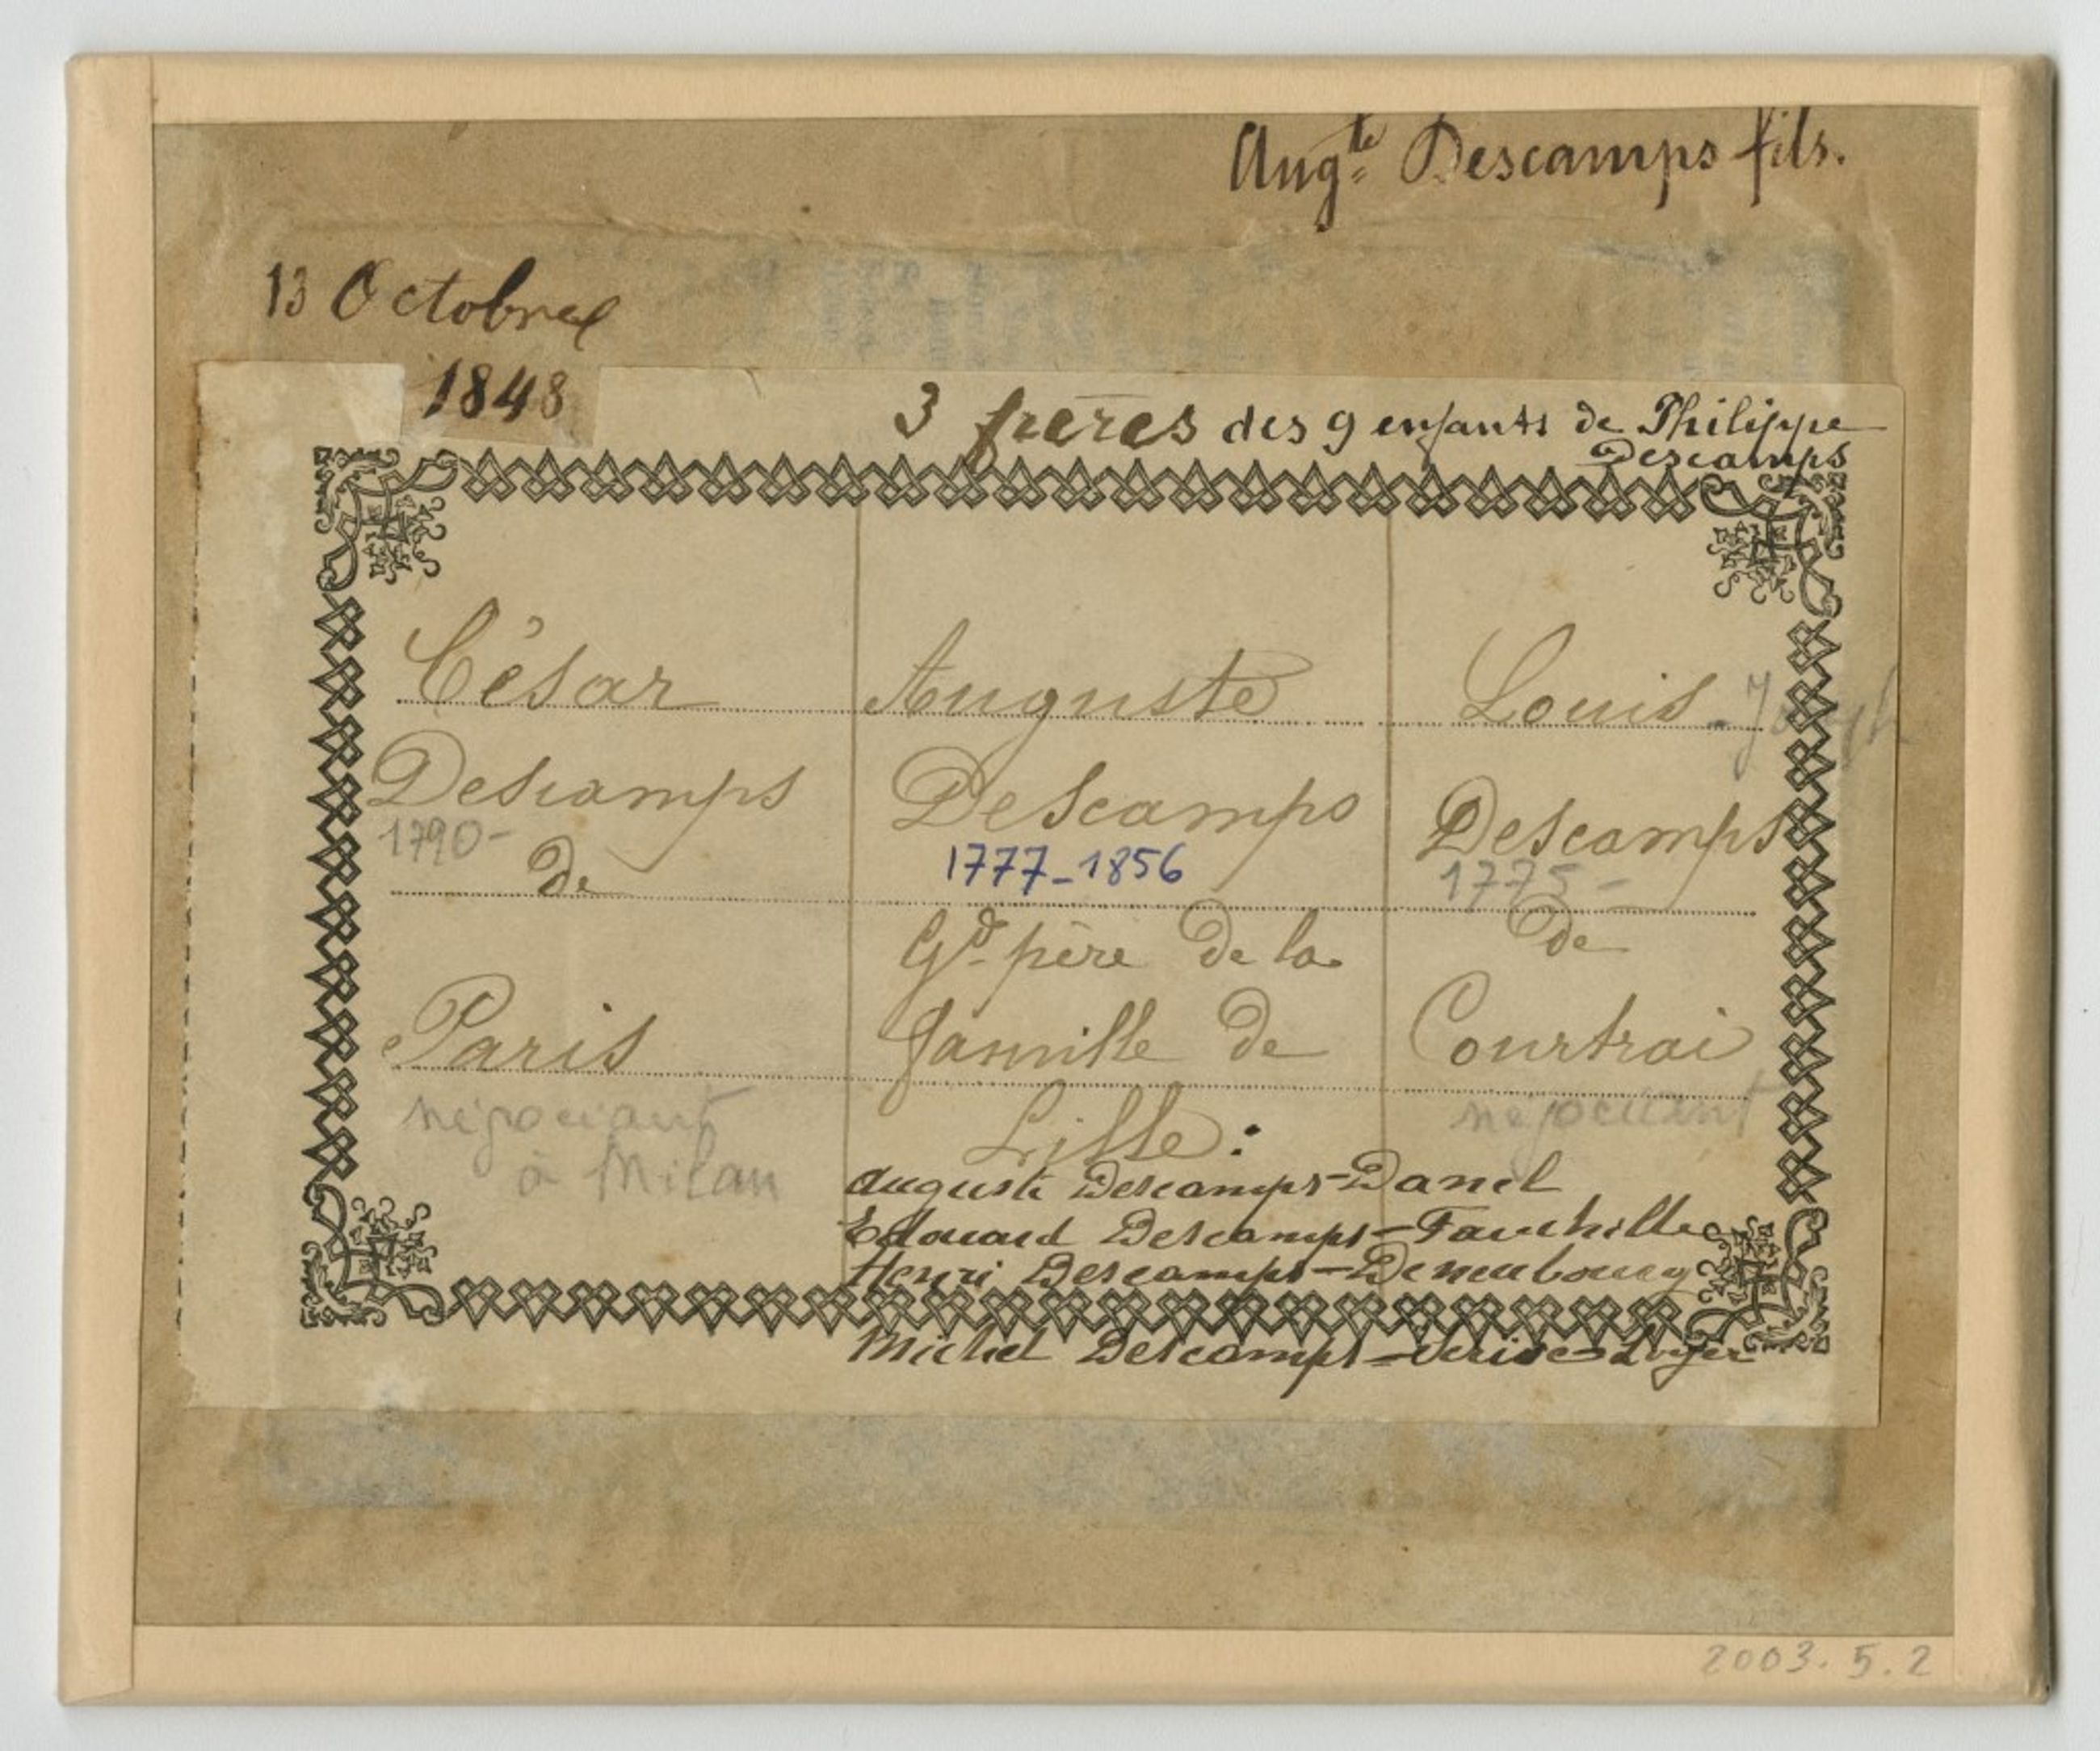 Augte Descamps fils.
13 Octobre
1848
3 frères des 9 enfants de Philippe
Descamps
César
Descamps
1790-
de
Paris
négociant
à Milan
Auguste
Descamps
1777-1856
Gd père de la
famille de
Lille :
Auguste Descamps-Danel
Edouard Descamps-Fauchille
Henri Descamps-Deneubourg
Michel Descamps-Loyer
Louis-Joseph
Descamps
1775-
de
Courtrai
négociant
2003.5.2